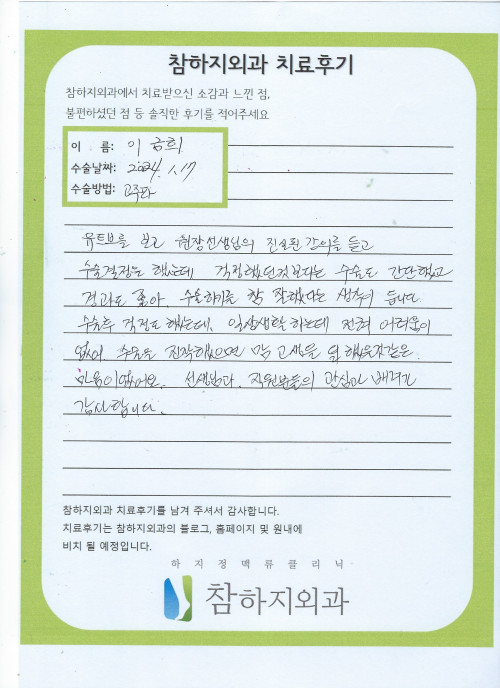 참하지외과 치료후기
참하지외과에서 치료받으신 소감과 느낀 점,
불편하셨던 점 등 솔직한 후기를 적어주세요
이 름: 이 금희
수술날짜: 2024. 1. 17
수술방법: 고주파
유튜브를 보고 원장선생님의 진실된 강의를 듣고
수술결정을 했는데 걱정했던것보다는 수술도 간단했고
경과도 좋아. 수술하기를 참 잘했다는 생각이 듭니다
수술후 걱정도 했는데, 일상생활 하는데 전혀 어려움이
없어. 수술을 진작했으면 막 고생을 덜 했을것같은
마음이었어요. 선생님과. 직원분들의 관심과 배려가
감사합니다.
참하지외과 치료후기를 남겨 주셔서 감사합니다.
치료후기는 참하지외과의 블로그, 홈페이지 및 원내에
비치 될 예정입니다.
하지정맥류클리닉
참하지외과